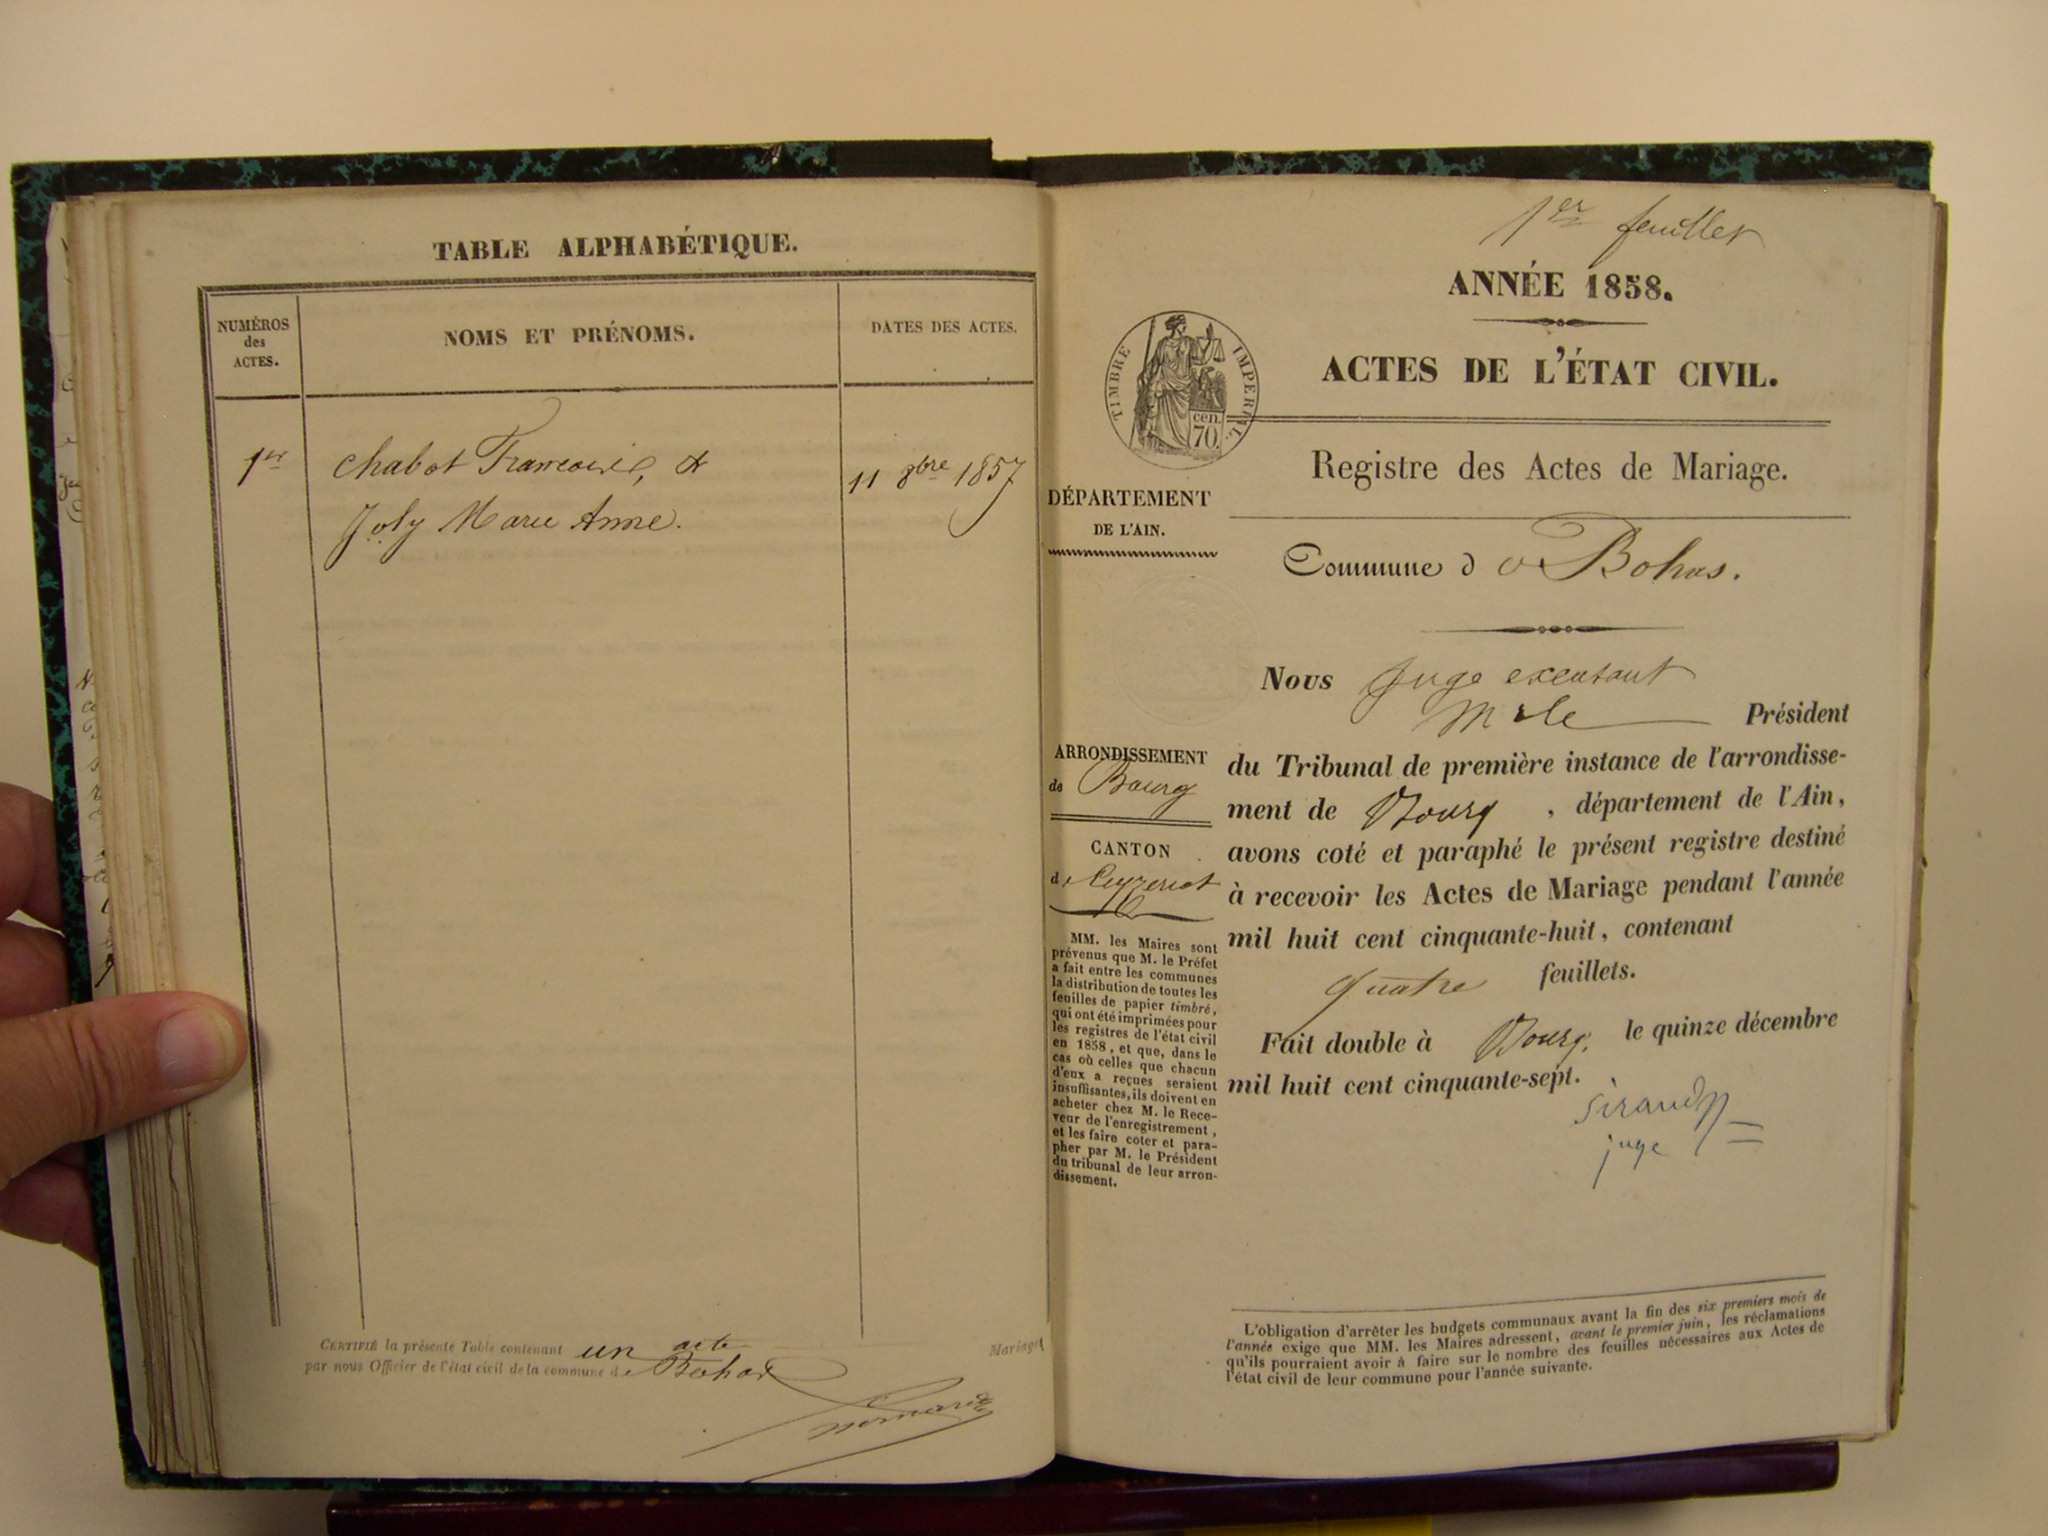 TABLE ALPHABÉTIQUE.
NUMÉROS
des
ACTES.
NOMS ET PRÉNOMS.
DATES DES ACTES.
1er
Chabot Francois, &
11 8bre 1857
Joly Marie Anne.
CERTIFIÉ la présente Table contenant un acte
par nous Officier de l'état civil de la commune de Bohas
Mariages
1er feuillet
ANNÉE 1858.
ACTES DE L'ÉTAT CIVIL.
TIMBRE IMPERIAL.
cen.
70.
Registre des Actes de Mariage.
DÉPARTEMENT
DE L'AIN.
Commune d e Bohas.
Nous Juge
Président
du Tribunal de première instance de l'arrondisse-
ment de Bourg , département de l'Ain,
avons coté et paraphé le présent registre destiné
à recevoir les Actes de Mariage pendant l'année
mil huit cent cinquante-huit, contenant
quatre feuillets.
Fait double à Bourg, le quinze décembre
mil huit cent cinquante-sept.
Sirand
juge
ARRONDISSEMENT
de Bourg
CANTON
de Ceyzeriat
MM. les Maires sont
prévenus que M. le Préfet
a fait entre les communes
la distribution de toutes les
feuilles de papier timbré,
qui ont été imprimées pour
les registres de l'état civil
en 1858, et que, dans le
cas où celles que chacun
d'eux a reçues seraient
insuffisantes, ils doivent en
acheter chez M. le Rece-
veur de l'enregistrement,
et les faire coter et para-
pher par M. le Président
du tribunal de leur arron-
dissement.
L'obligation d'arrêter les budgets communaux avant la fin des six premiers mois de
l'année exige que MM. les Maires adressent, avant le premier juin, les réclamations
qu'ils pourraient avoir à faire sur le nombre des feuilles nécessaires aux Actes de
l'état civil de leur commune pour l'année suivante.